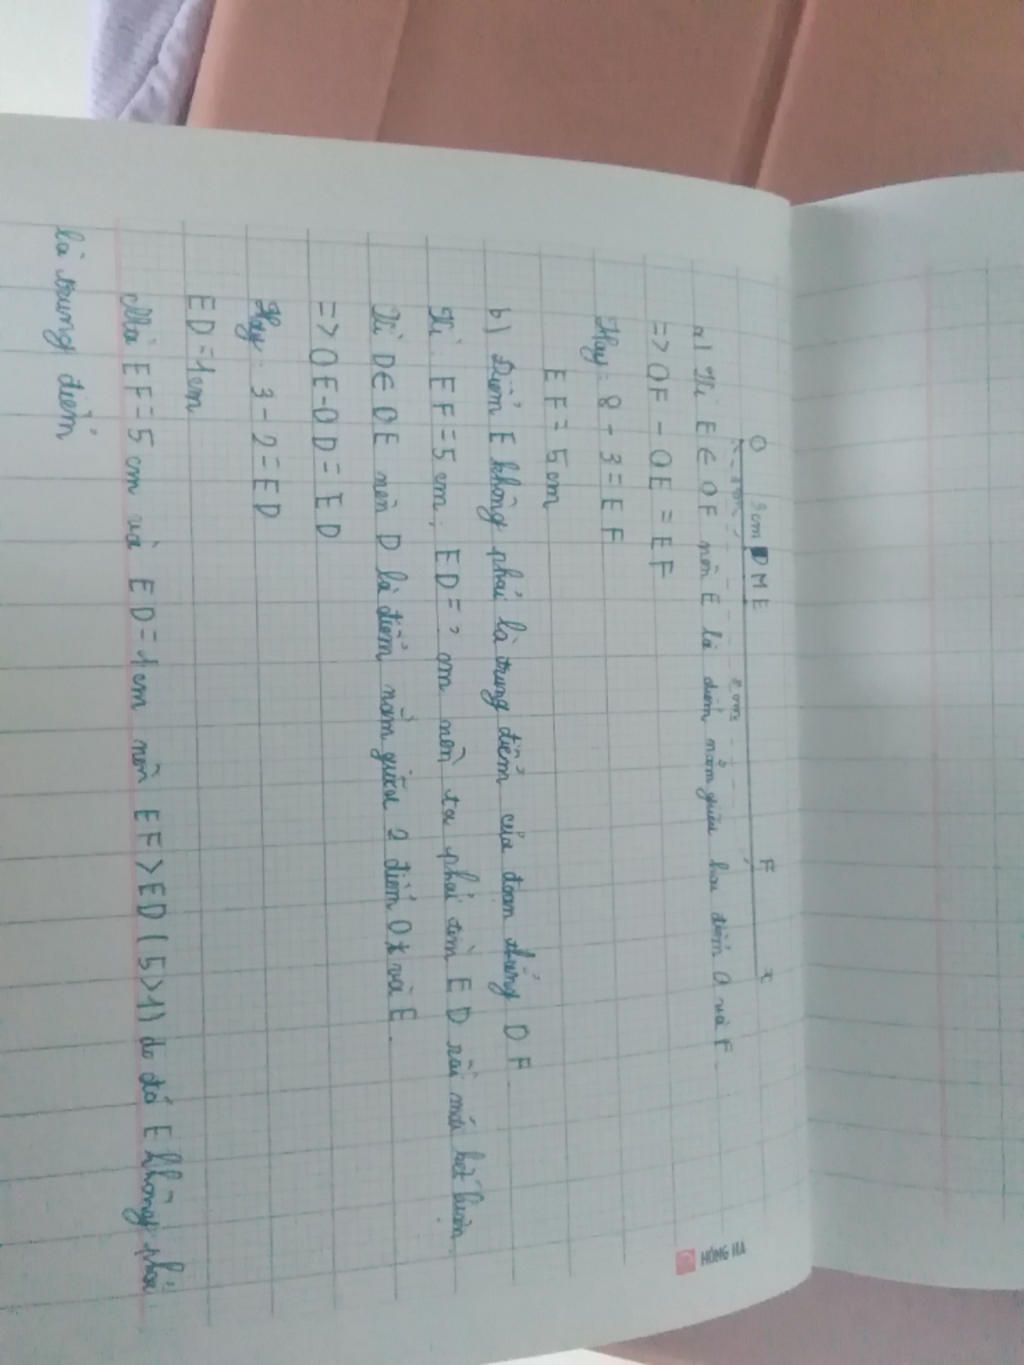 O 3cm D M E F x
8cm
a) Vì E ∈ OF nên E là điểm nằm giữa hai điểm O và F
=> OF - OE = EF
Hay: 8 - 3 = EF
EF = 5cm
b) Điểm E không phải là trung điểm của đoạn thẳng DF
Vì: EF = 5cm; ED = ? cm nên ta phải tìm ED rồi mới kết luận
Vì D ∈ OE nên D là điểm nằm giữa 2 điểm O và E.
=> OE - OD = ED
Hay: 3 - 2 = ED
ED = 1cm
Mà EF = 5 cm và ED = 1cm nên EF > ED (5>1) do đó E không phải
là trung điểm
HỒNG HÀ